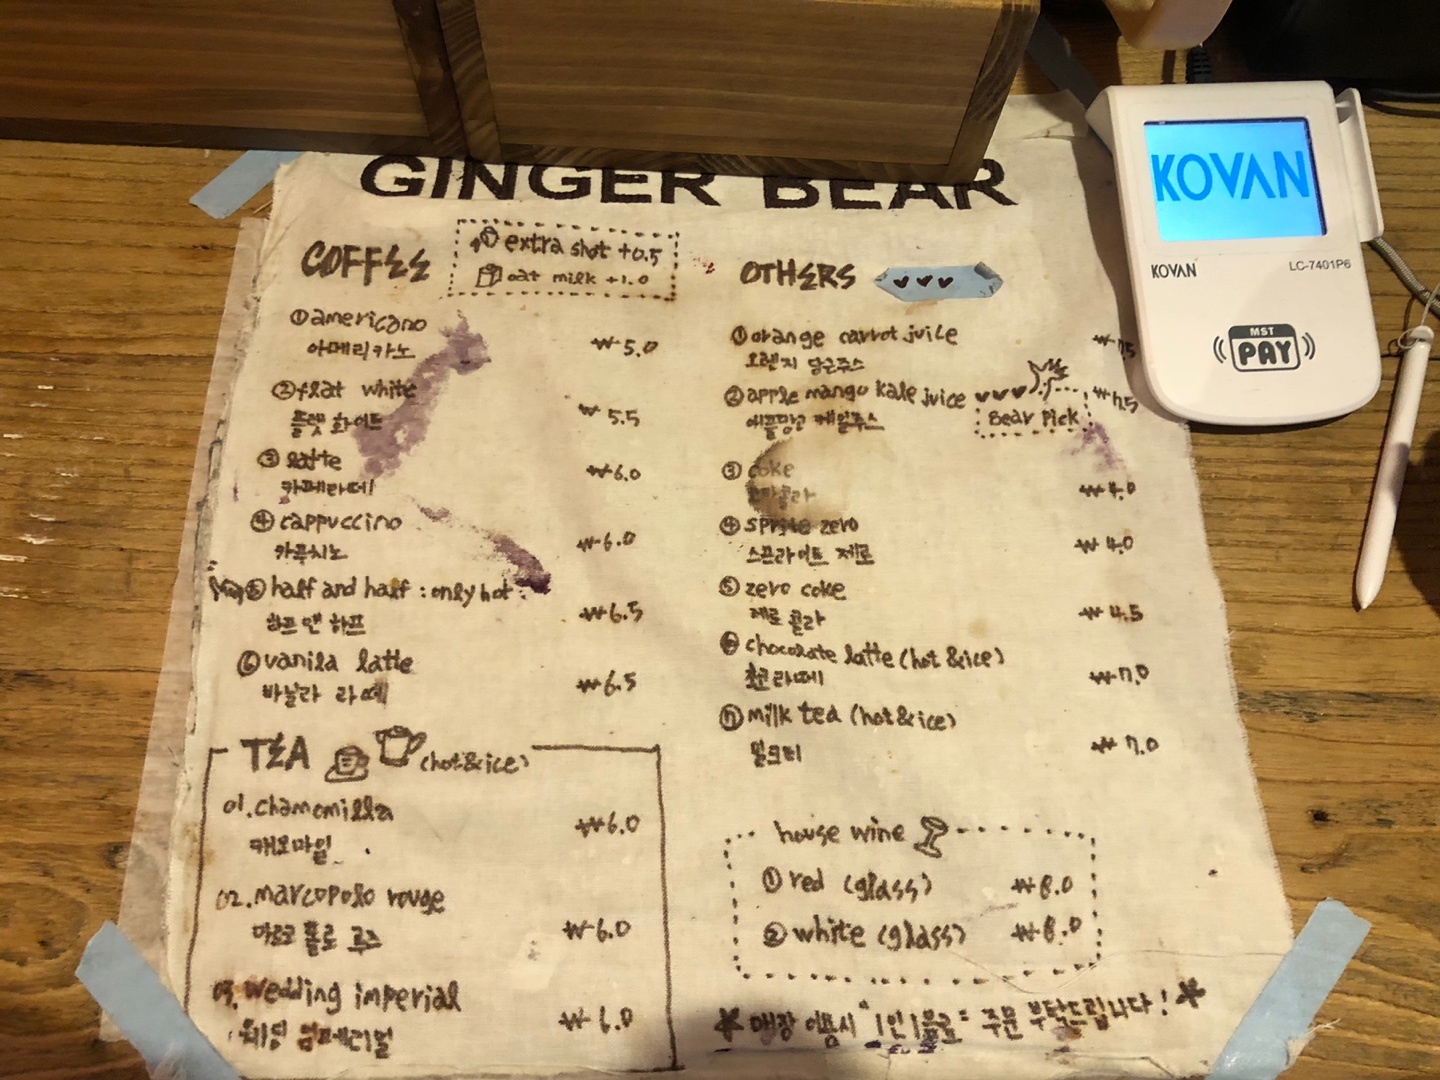 GINGER BEAR
COFFEE
extra shot +0.5
oat milk +1.0
① americano ₩5.0
아메리카노
② flat white
플랫 화이트 ₩5.5
③ latte ₩6.0
카페라떼
④ cappuccino
카푸치노 ₩6.0
⑤ half and half : only hot
하프 앤 하프 ₩6.5
⑥ vanila latte
바닐라 라떼 ₩6.5
TEA (hot&ice)
01. chamomilla ₩6.0
캐모마일
02. marcopolo rouge
마르코 폴로 루즈 ₩6.0
03. wedding imperial
웨딩 임페리얼 ₩6.0
OTHERS
① orange carrot juice ₩7.5
오렌지 당근주스
② apple mango kale juice ₩7.5
애플망고 케일주스
Bear Pick
③ coke
코카콜라 ₩4.0
④ sprite zero
스프라이트 제로 ₩4.0
⑤ zero coke
제로 콜라 ₩4.5
⑥ chocolate latte (hot &ice)
초코라떼 ₩7.0
⑦ milk tea (hot&ice)
밀크티 ₩7.0
house wine
① red (glass) ₩8.0
② white (glass) ₩8.0
* 매장 이용시 "1인1음료" 주문 부탁드립니다! *
KOVAN
KOVAN LC-7401P6
MST
PAY